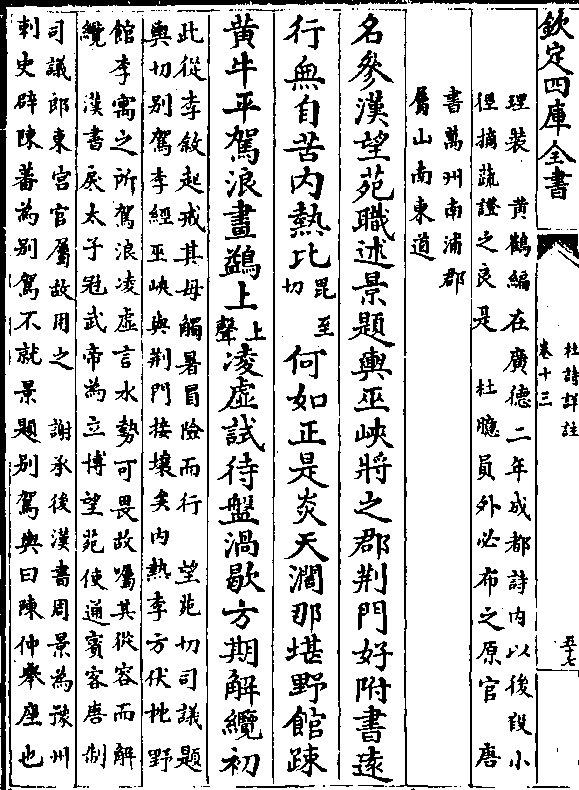 欽定四庫全書
杜詩詳註
卷十三
五十七
理装 黄鶴編在廣德二年成都詩内以後段小
徑摘蔬證之良是 杜臆員外必布之原官 唐
書萬州南浦郡
屬山南東道
名參漢望苑職述景題輿巫峽將之郡荆門好附書遠
行無自苦内熱比毘至切何如正是炎天濶那堪野館踈
黄牛平駕浪畫鷁上上聲凌虛試待盤渦歇方期解纜初
此從李敘起戒其母觸暑冒險而行 望苑切司議題
輿切別駕李經巫峽與荆門接壤矣内熱李方伏枕野
館李寓之所駕浪凌虛言水勢可畏故囑其從容而解
纜 漢書戾太子冠武帝為立博望苑使通賓客唐制
司議郎東宮官屬故用之 謝承後漢書周景為豫州
刺史辟陳蕃為別駕不就景題別駕輿曰陳仲舉座也